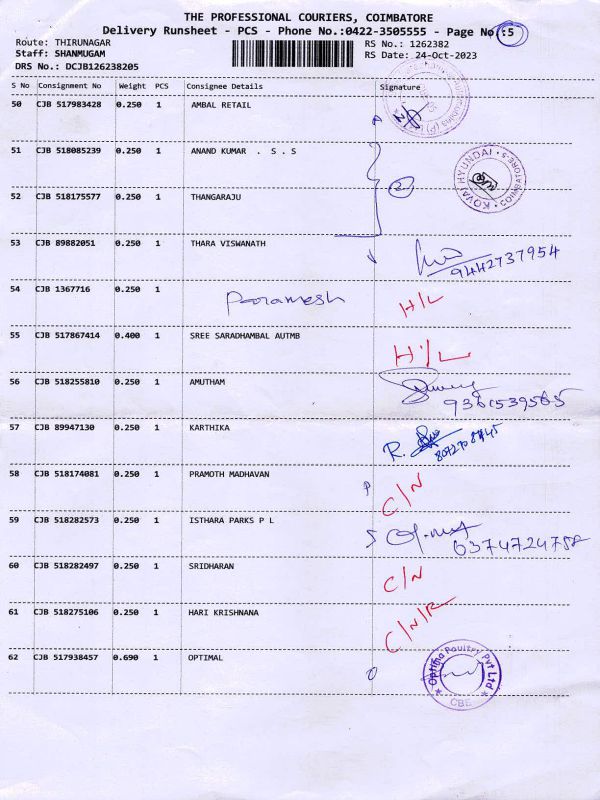 THE PROFESSIONAL COURIERS, COIMBATORE
Delivery Runsheet - PCS - Phone No.:0422-3505555 - Page No.:5
Route: THIRUNAGAR RS No.: 1262382
Staff: SHANMUGAM RS Date: 24-Oct-2023
DRS No.: DCJB126238205
S No Consignment No Weight PCS Consignee Details Signature
50 CJB 517983428 0.250 1 AMBAL RETAIL
51 CJB 518085239 0.250 1 ANAND KUMAR . S . S
KOVAI HYUNDAI
52 CJB 518175577 0.250 1 THANGARAJU 2
53 CJB 89882051 0.250 1 THARA VISWANATH
9442737954
54 CJB 1367716 0.250 1 Paramesh H/L
55 CJB 517867414 0.400 1 SREE SARADHAMBAL AUTMB
H/L
56 CJB 518255810 0.250 1 AMUTHAM
57 CJB 89947130 0.250 1 KARTHIKA
58 CJB 518174081 0.250 1 PRAMOTH MADHAVAN
P C/N
59 CJB 518282573 0.250 1 ISTHARA PARKS P L
60 CJB 518282497 0.250 1 SRIDHARAN
C/N
61 CJB 518275106 0.250 1 HARI KRISHNANA
C/N/R
62 CJB 517938457 0.690 1 OPTIMAL
Optima Poultry Pvt Ltd
CBE